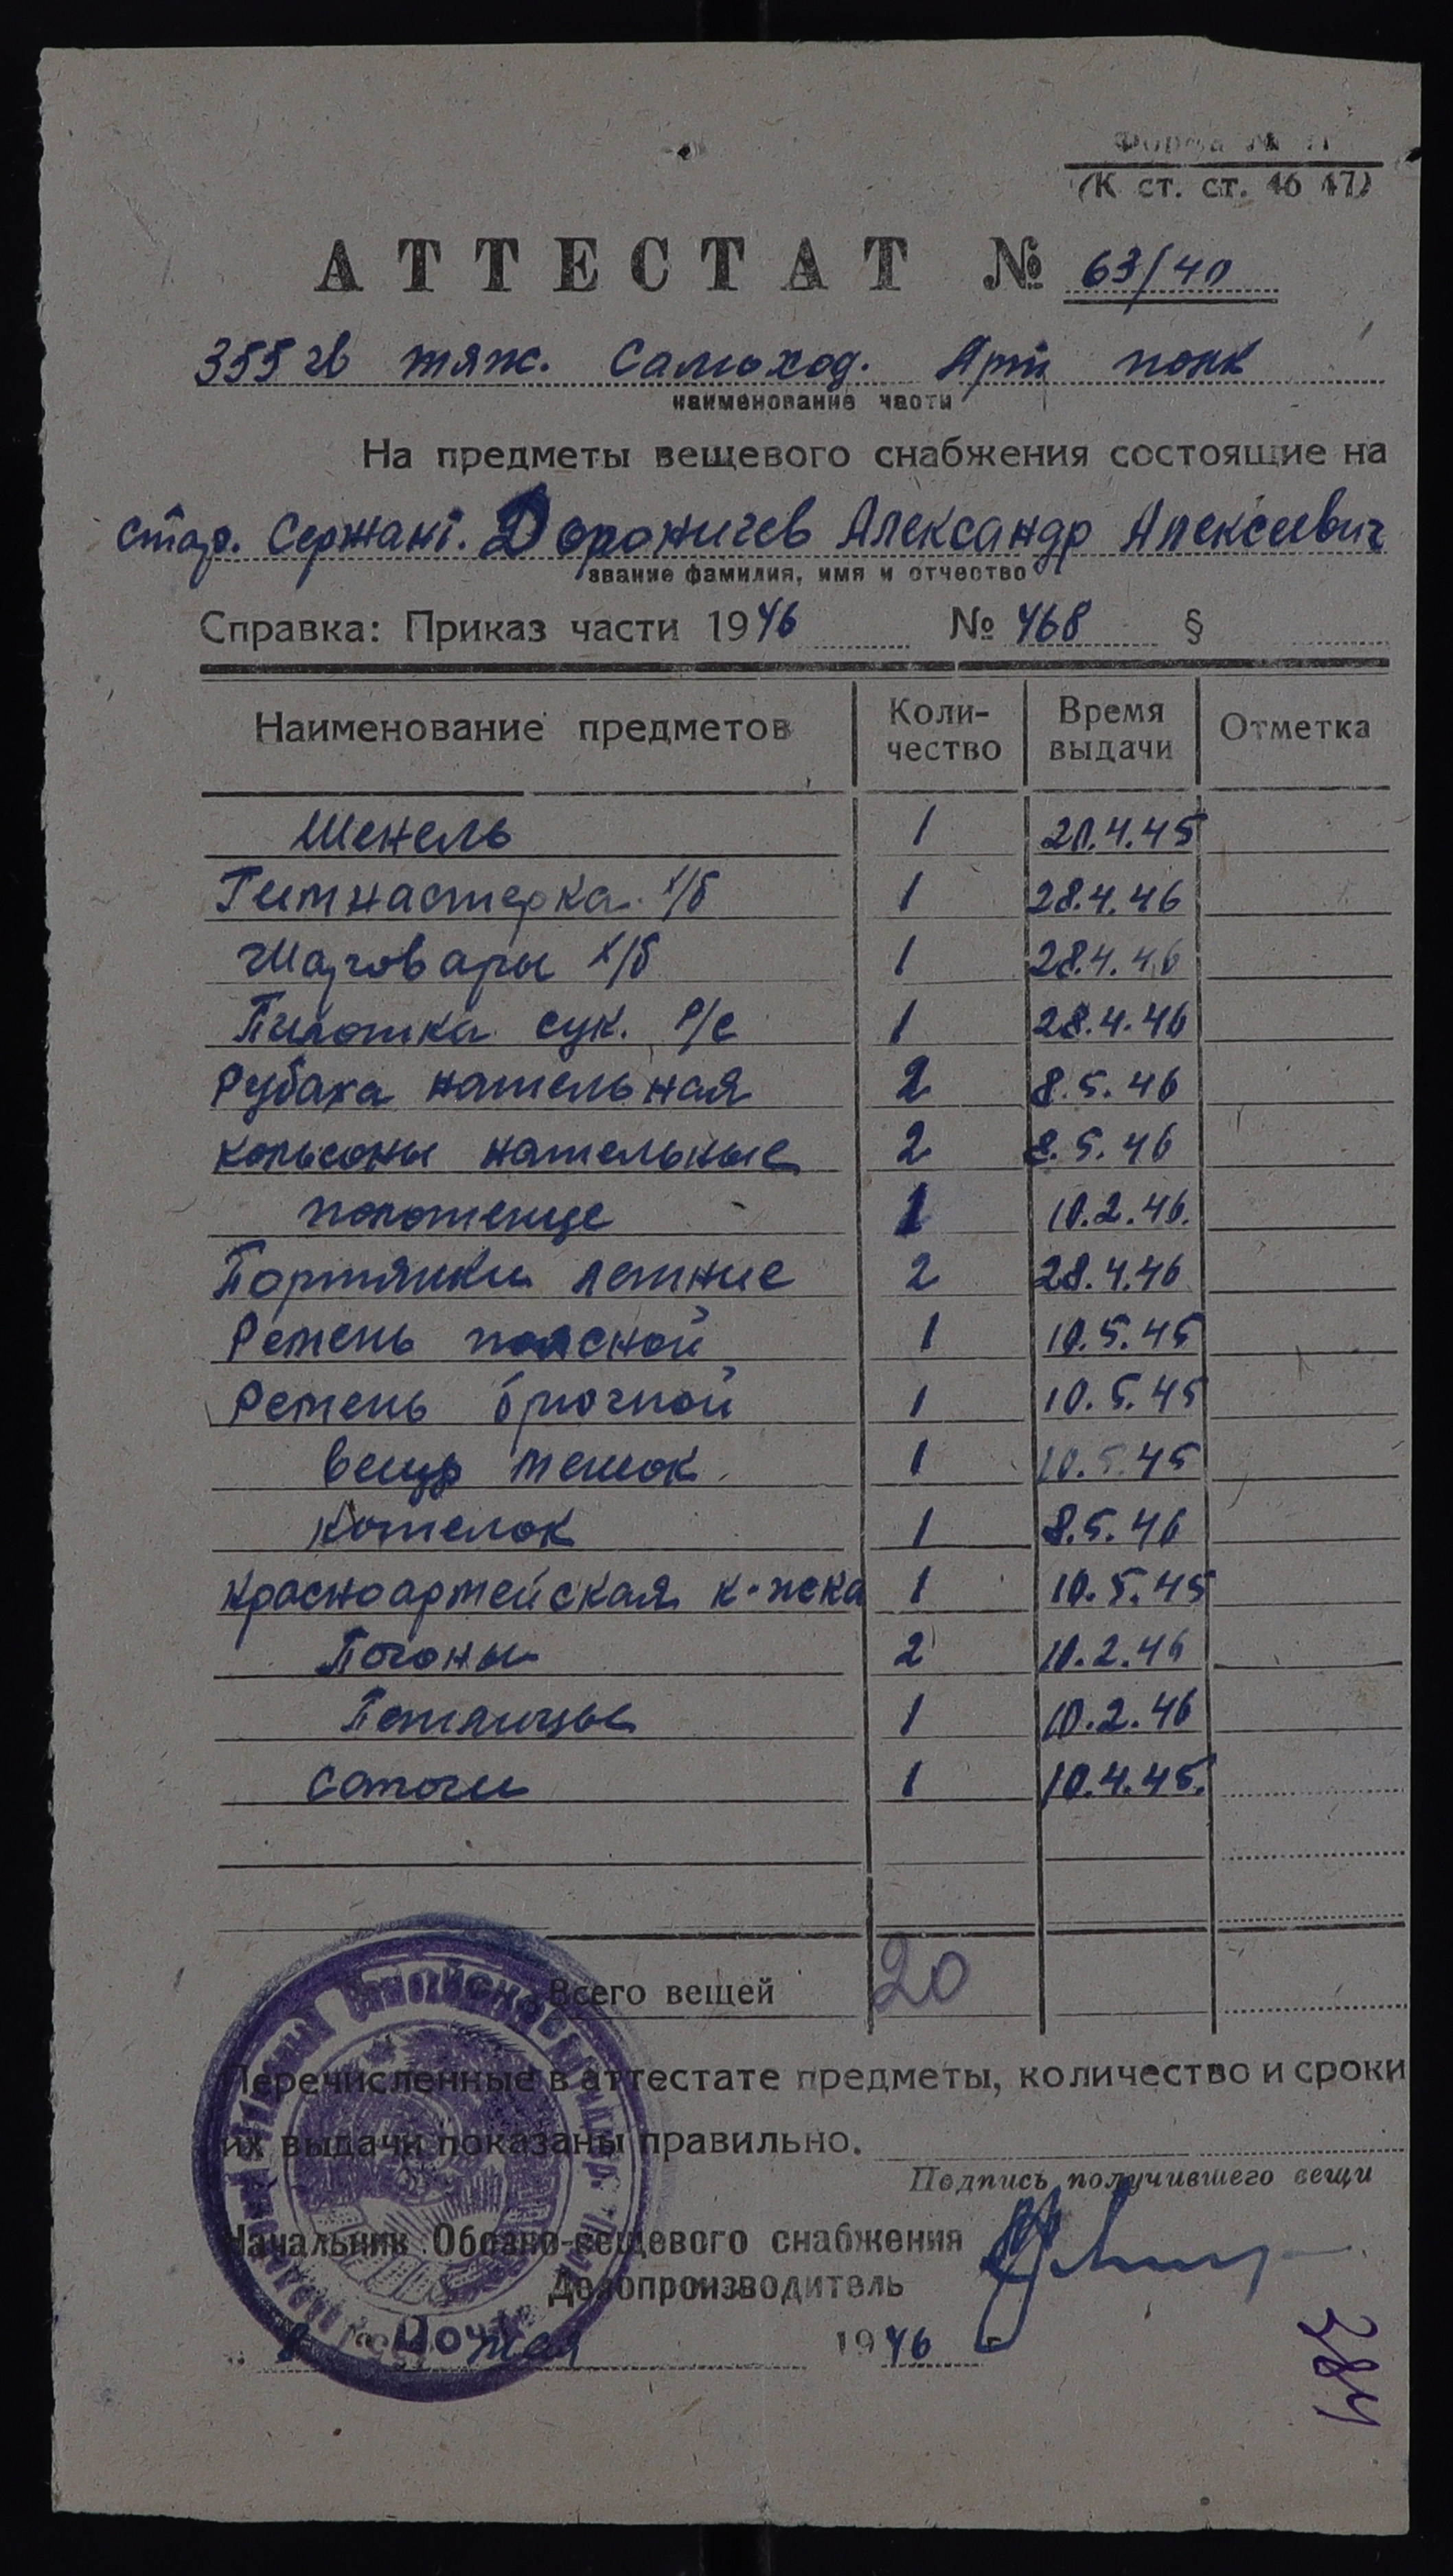 Форма №
(К ст. ст. 46 47)
АТТЕСТАТ № 63/40
355 гв тяж. Самоход. Арт полк
наименование части
На предметы вещевого снабжения состоящие на
стар. Сержант. Дорожичев Александр Алексеевич
звание фамилия, имя и отчество
Справка: Приказ части 1946 № 468 §
Наименование предметов Коли- Время Отметка
чество выдачи
Шенель 1 20.4.45
Гимнастерка х/б 1 28.4.46
Шаровары х/б 1 28.4.46
Пилотка сук. р/с 1 28.4.46
Рубаха нательная 2 8.5.46
кольсоны нательные 2 8.5.46
полотенце 1 10.2.46.
Портянки летние 2 28.4.46
Ремень поясной 1 10.5.45
Ремень брючной 1 10.5.45
вещь мешок 1 10.5.45
Котелок 1 8.5.46
Красноармейская к-жка 1 10.5.45
Погоны 2 10.2.46
Петлицы 1 10.2.46
Сапоги 1 10.4.45.
Всего вещей 20
Перечисленные в аттестате предметы, количество и сроки
их выдачи показаны правильно.
Подпись получившего вещи
Начальник Обозно-вещевого снабжения
Делопроизводитель
8 мая 1946 г
384